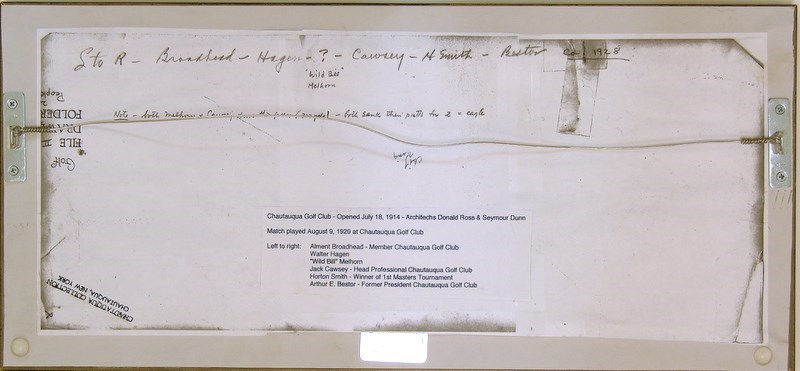 L to R - Broadhead - Hagen - ? - Cawsey - H Smith - Bestor Ca 1928
"Wild Bill"
Melhorn
Note - both Melhorn & - both sank their putts for 2 = eagle
People
FOLDER
DRAWER
FILE II
Golf
Chautauqua Golf Club - Opened July 18, 1914 - Architechs Donald Ross & Seymour Dunn
Match played August 9, 1929 at Chautauqua Golf Club
Left to right: Alment Broadhead - Member Chautauqua Golf Club
Walter Hagen
"Wild Bill" Melhorn
Jack Cawsey - Head Professional Chautauqua Golf Club
Horton Smith - Winner of 1st Masters Tournament
Arthur E. Bestor - Former President Chautauqua Golf Club
CHAUTAUQUA COLLECTION
CHAUTAUQUA, NEW YORK